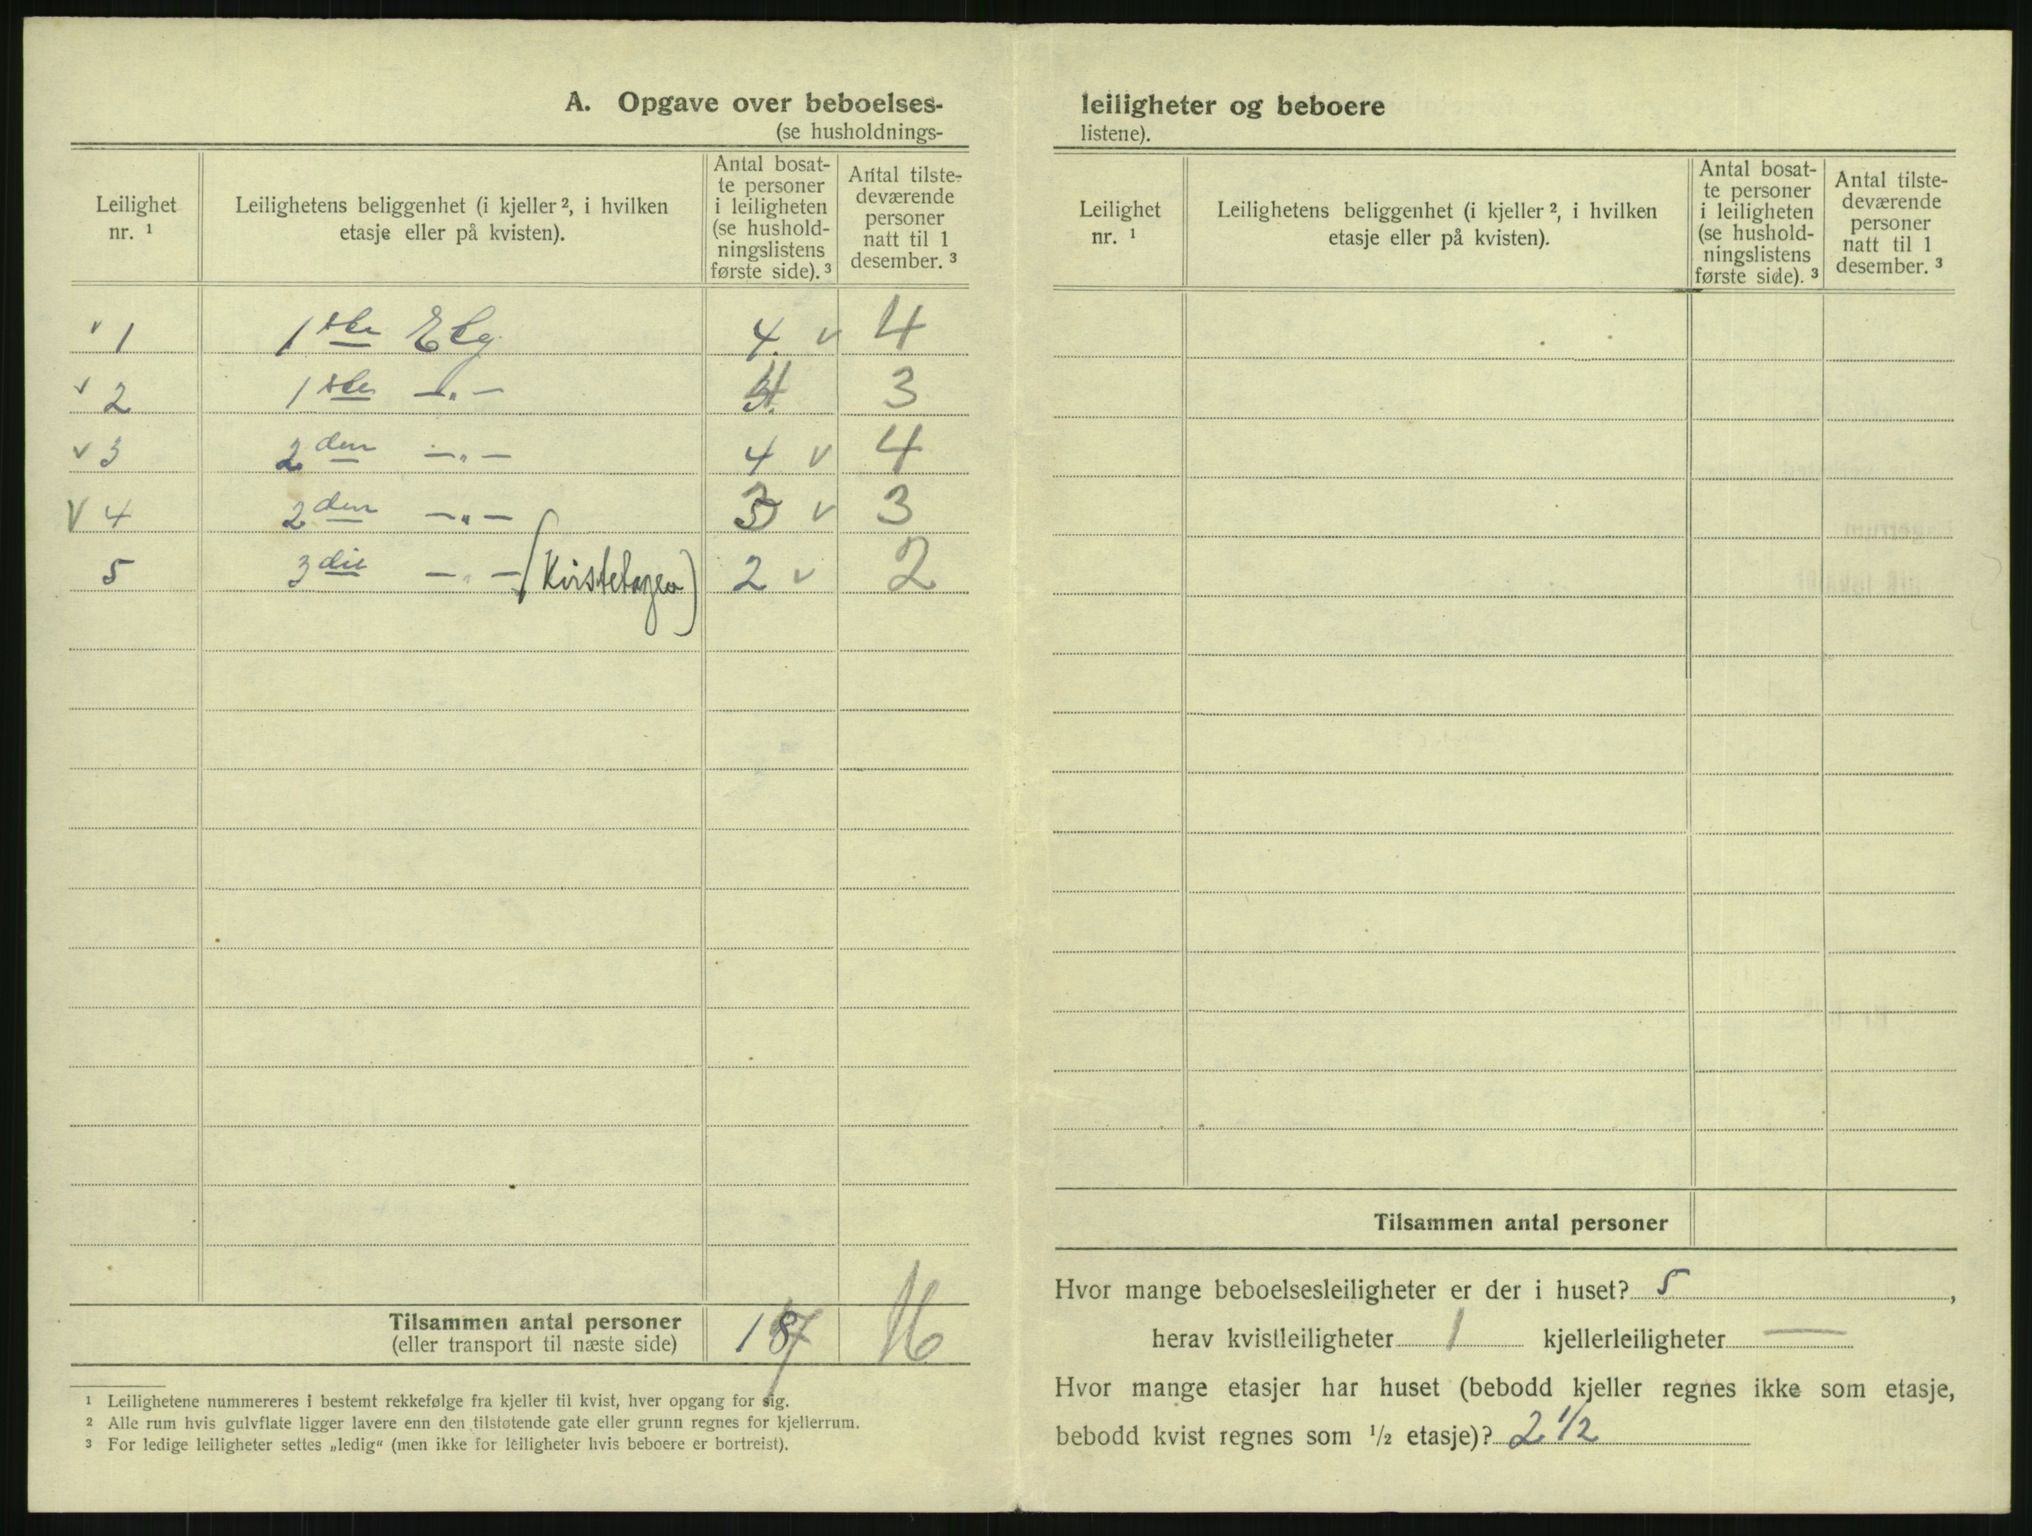 A. Opgave over beboelses-
(se husholdnings-
Leilighet nr. ¹
Leilighetens beliggenhet (i kjeller ², i hvilken etasje eller på kvisten).
Antal bosat-
te personer
i leiligheten
(se hushold-
ningslistens
første side). ³
Antal tilste-
deværende
personer
natt til 1
desember. ³
v 1 1ste Etg 4. v 4
v 2 1ste —„— 3
v 3 2den —„— 4 v 4
v 4 2den —„— 3 v 3
5 3die —„— (Kvistetagen) 2 v 2
Tilsammen antal personer
(eller transport til næste side)
17 16
¹ Leilighetene nummereres i bestemt rekkefølge fra kjeller til kvist, hver opgang for sig.
² Alle rum hvis gulvflate ligger lavere enn den tilstøtende gate eller grunn regnes for kjellerrum.
³ For ledige leiligheter settes „ledig“ (men ikke for leiligheter hvis beboere er bortreist).
leiligheter og beboere
listene).
Leilighet nr. ¹
Leilighetens beliggenhet (i kjeller ², i hvilken etasje eller på kvisten).
Antal bosat-
te personer
i leiligheten
(se hushold-
ningslistens
første side). ³
Antal tilste-
deværende
personer
natt til 1
desember. ³
Tilsammen antal personer
Hvor mange beboelsesleiligheter er der i huset? 5,
herav kvistleiligheter 1 kjellerleiligheter —
Hvor mange etasjer har huset (bebodd kjeller regnes ikke som etasje,
bebodd kvist regnes som ½ etasje)? 2 ½